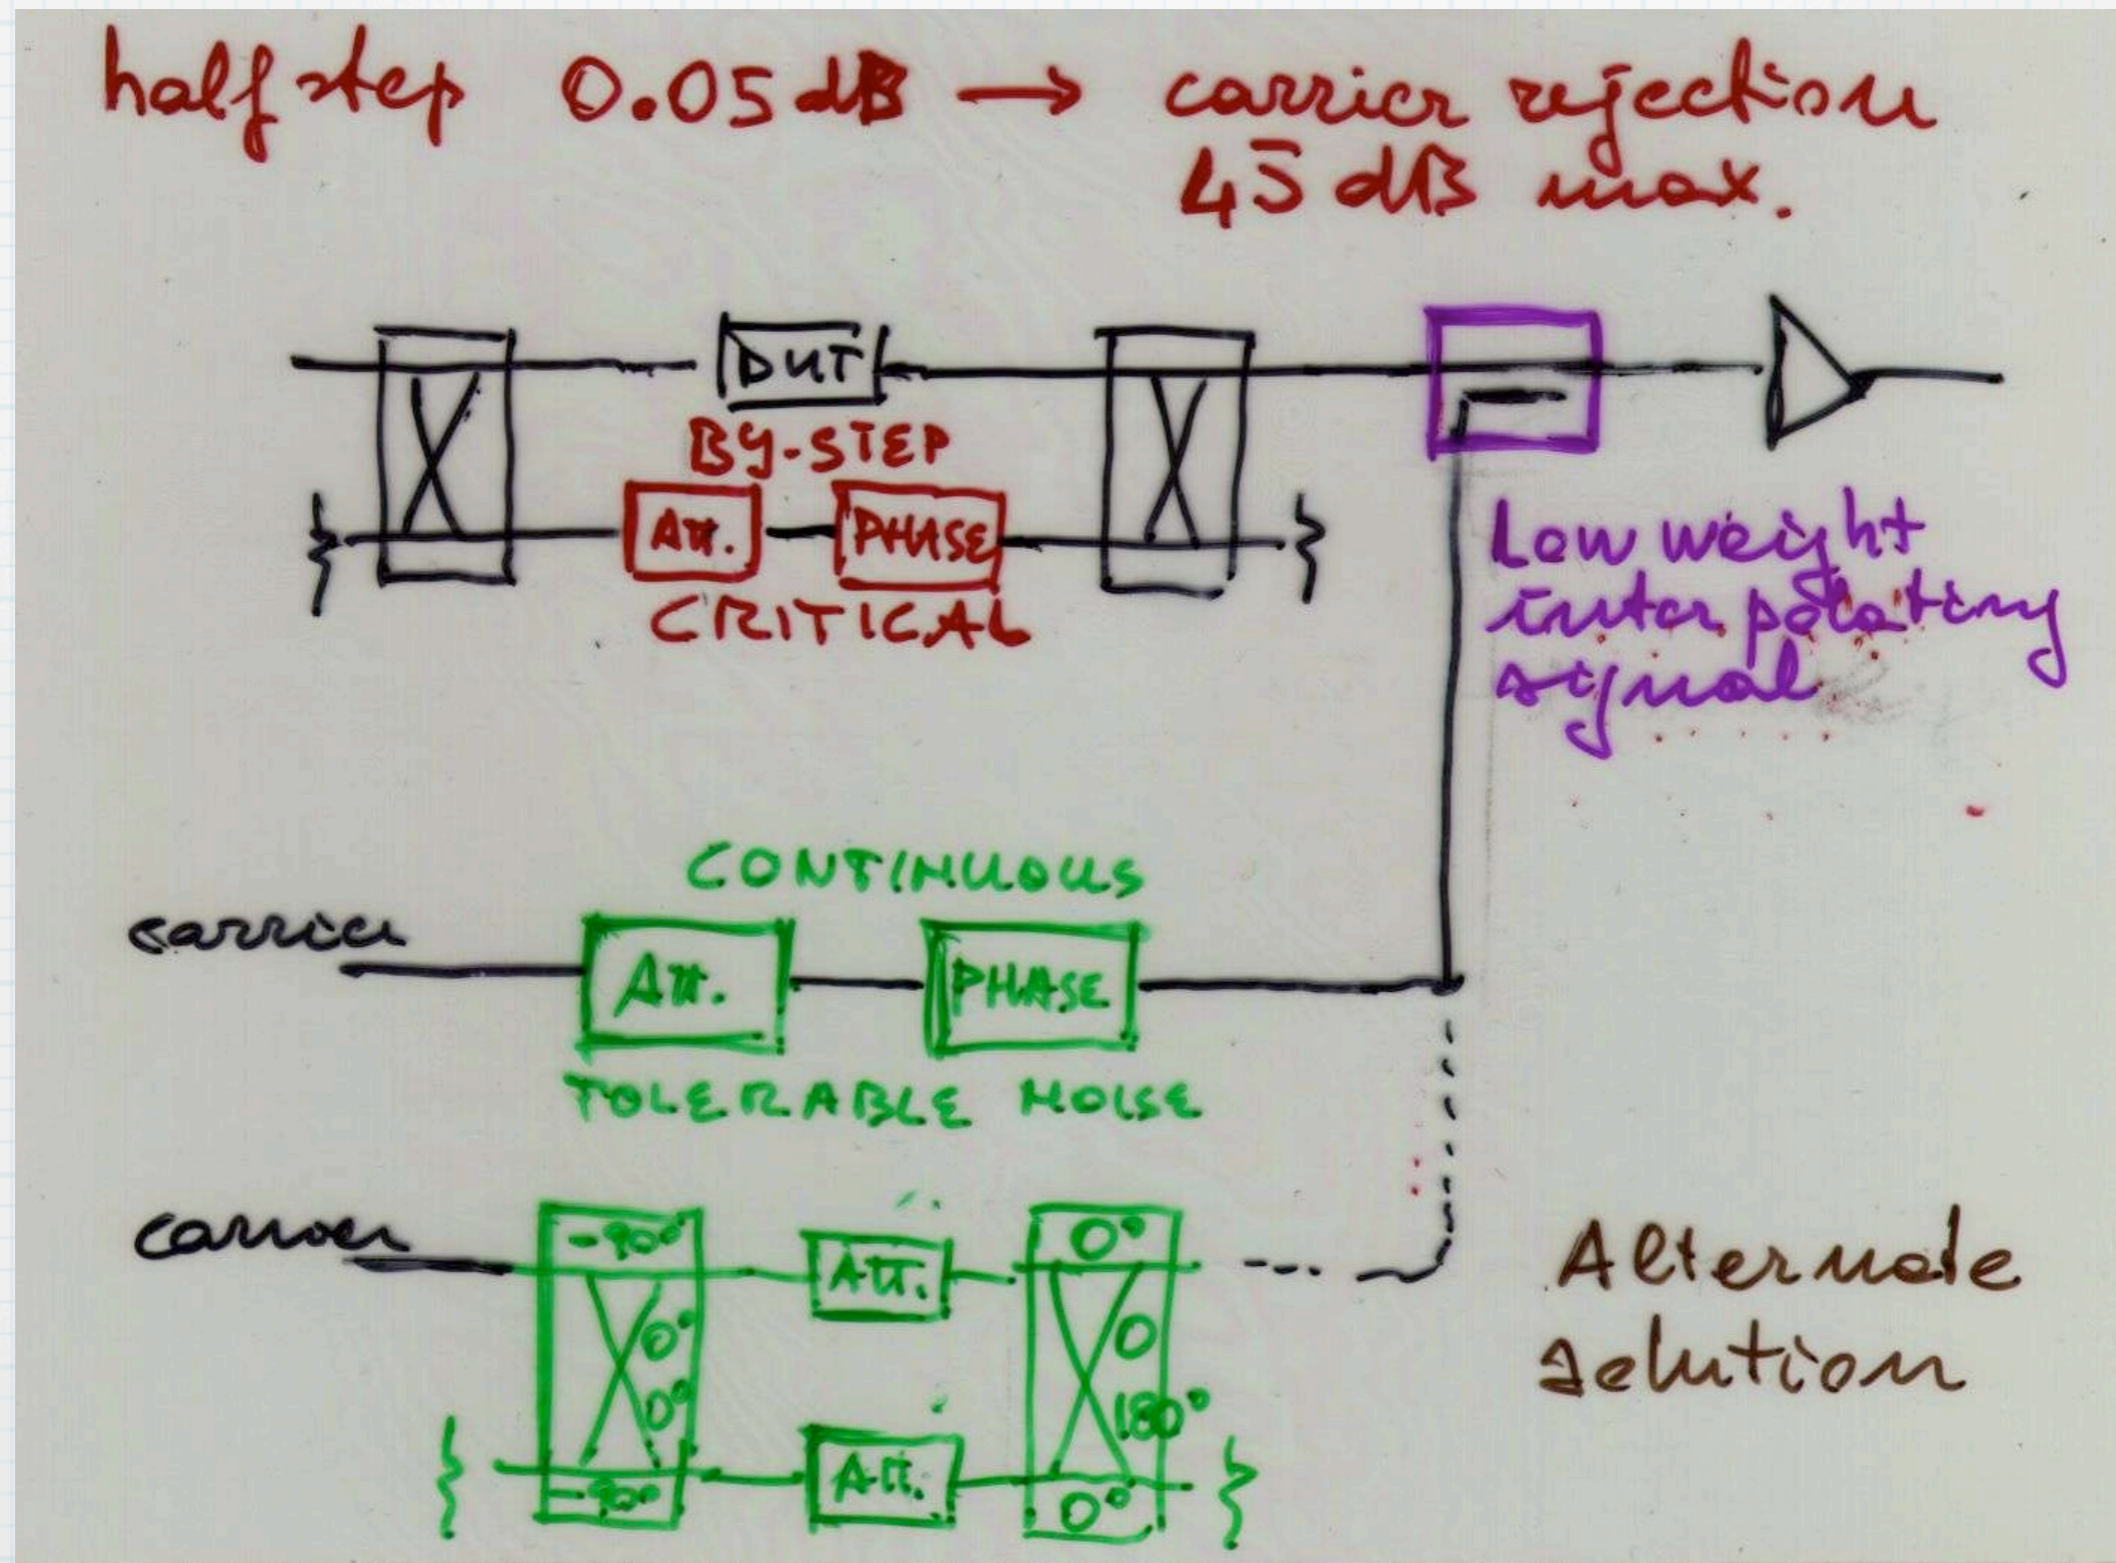 half step 0.05 dB → carrier rejection
45 dB max.
DUT
BY-STEP
Att. PHASE
CRITICAL
Low weight
interpolating
signal
CONTINUOUS
carrier
Att. PHASE
TOLERABLE NOISE
carrier
-90° Att. 0°
0° 0
0° 180°
-90° Att. 0°
Alternate
solution